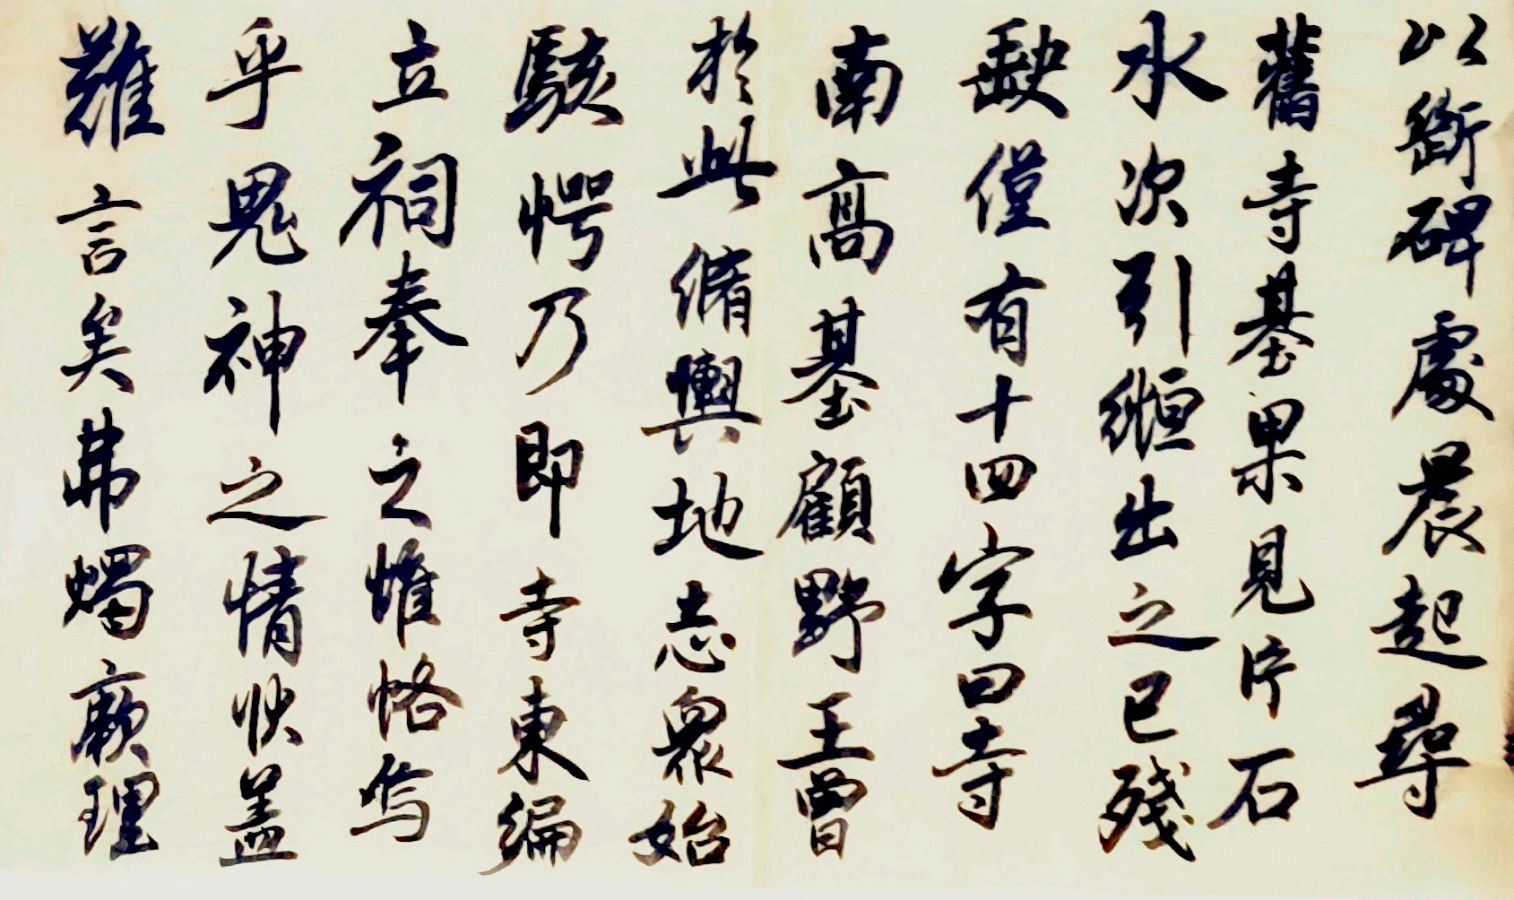 以斷碑處晨起尋
舊寺基果見片石
水次引縆出之已殘
缺僅有十四字曰寺
南高基顧野王曾
於此脩輿地志眾始
駭愕乃即寺東編
立祠奉之惟恪焉
乎鬼神之情狀蓋
難言矣弗燭厥理